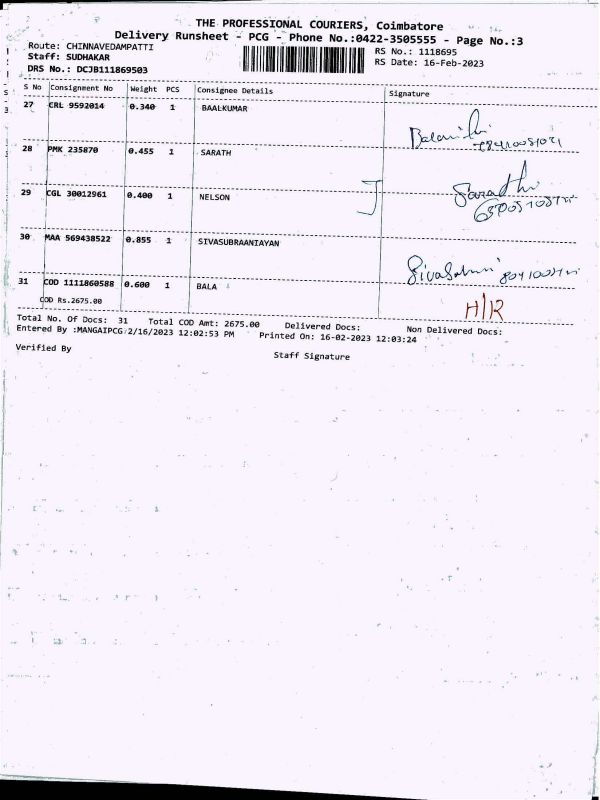 THE PROFESSIONAL COURIERS, Coimbatore
Delivery Runsheet - PCG - Phone No.:0422-3505555 - Page No.:3
Route: CHINNAVEDAMPATTI
RS No.: 1118695
Staff: SUDHAKAR
RS Date: 16-Feb-2023
DRS No.: DCJB111869503
S No Consignment No Weight PCS Consignee Details Signature
27 CRL 9592014 0.340 1 BAALKUMAR
28 PMK 235870 0.455 1 SARATH
29 CGL 30012961 0.400 1 NELSON
30 MAA 569438522 0.855 1 SIVASUBRAANIAYAN
31 COD 1111860588 0.600 1 BALA
H/R
COD Rs.2675.00
Total No. Of Docs: 31 Total COD Amt: 2675.00 Delivered Docs: Non Delivered Docs:
Entered By :MANGAIPCG 2/16/2023 12:02:53 PM Printed On: 16-02-2023 12:03:24
Verified By
Staff Signature